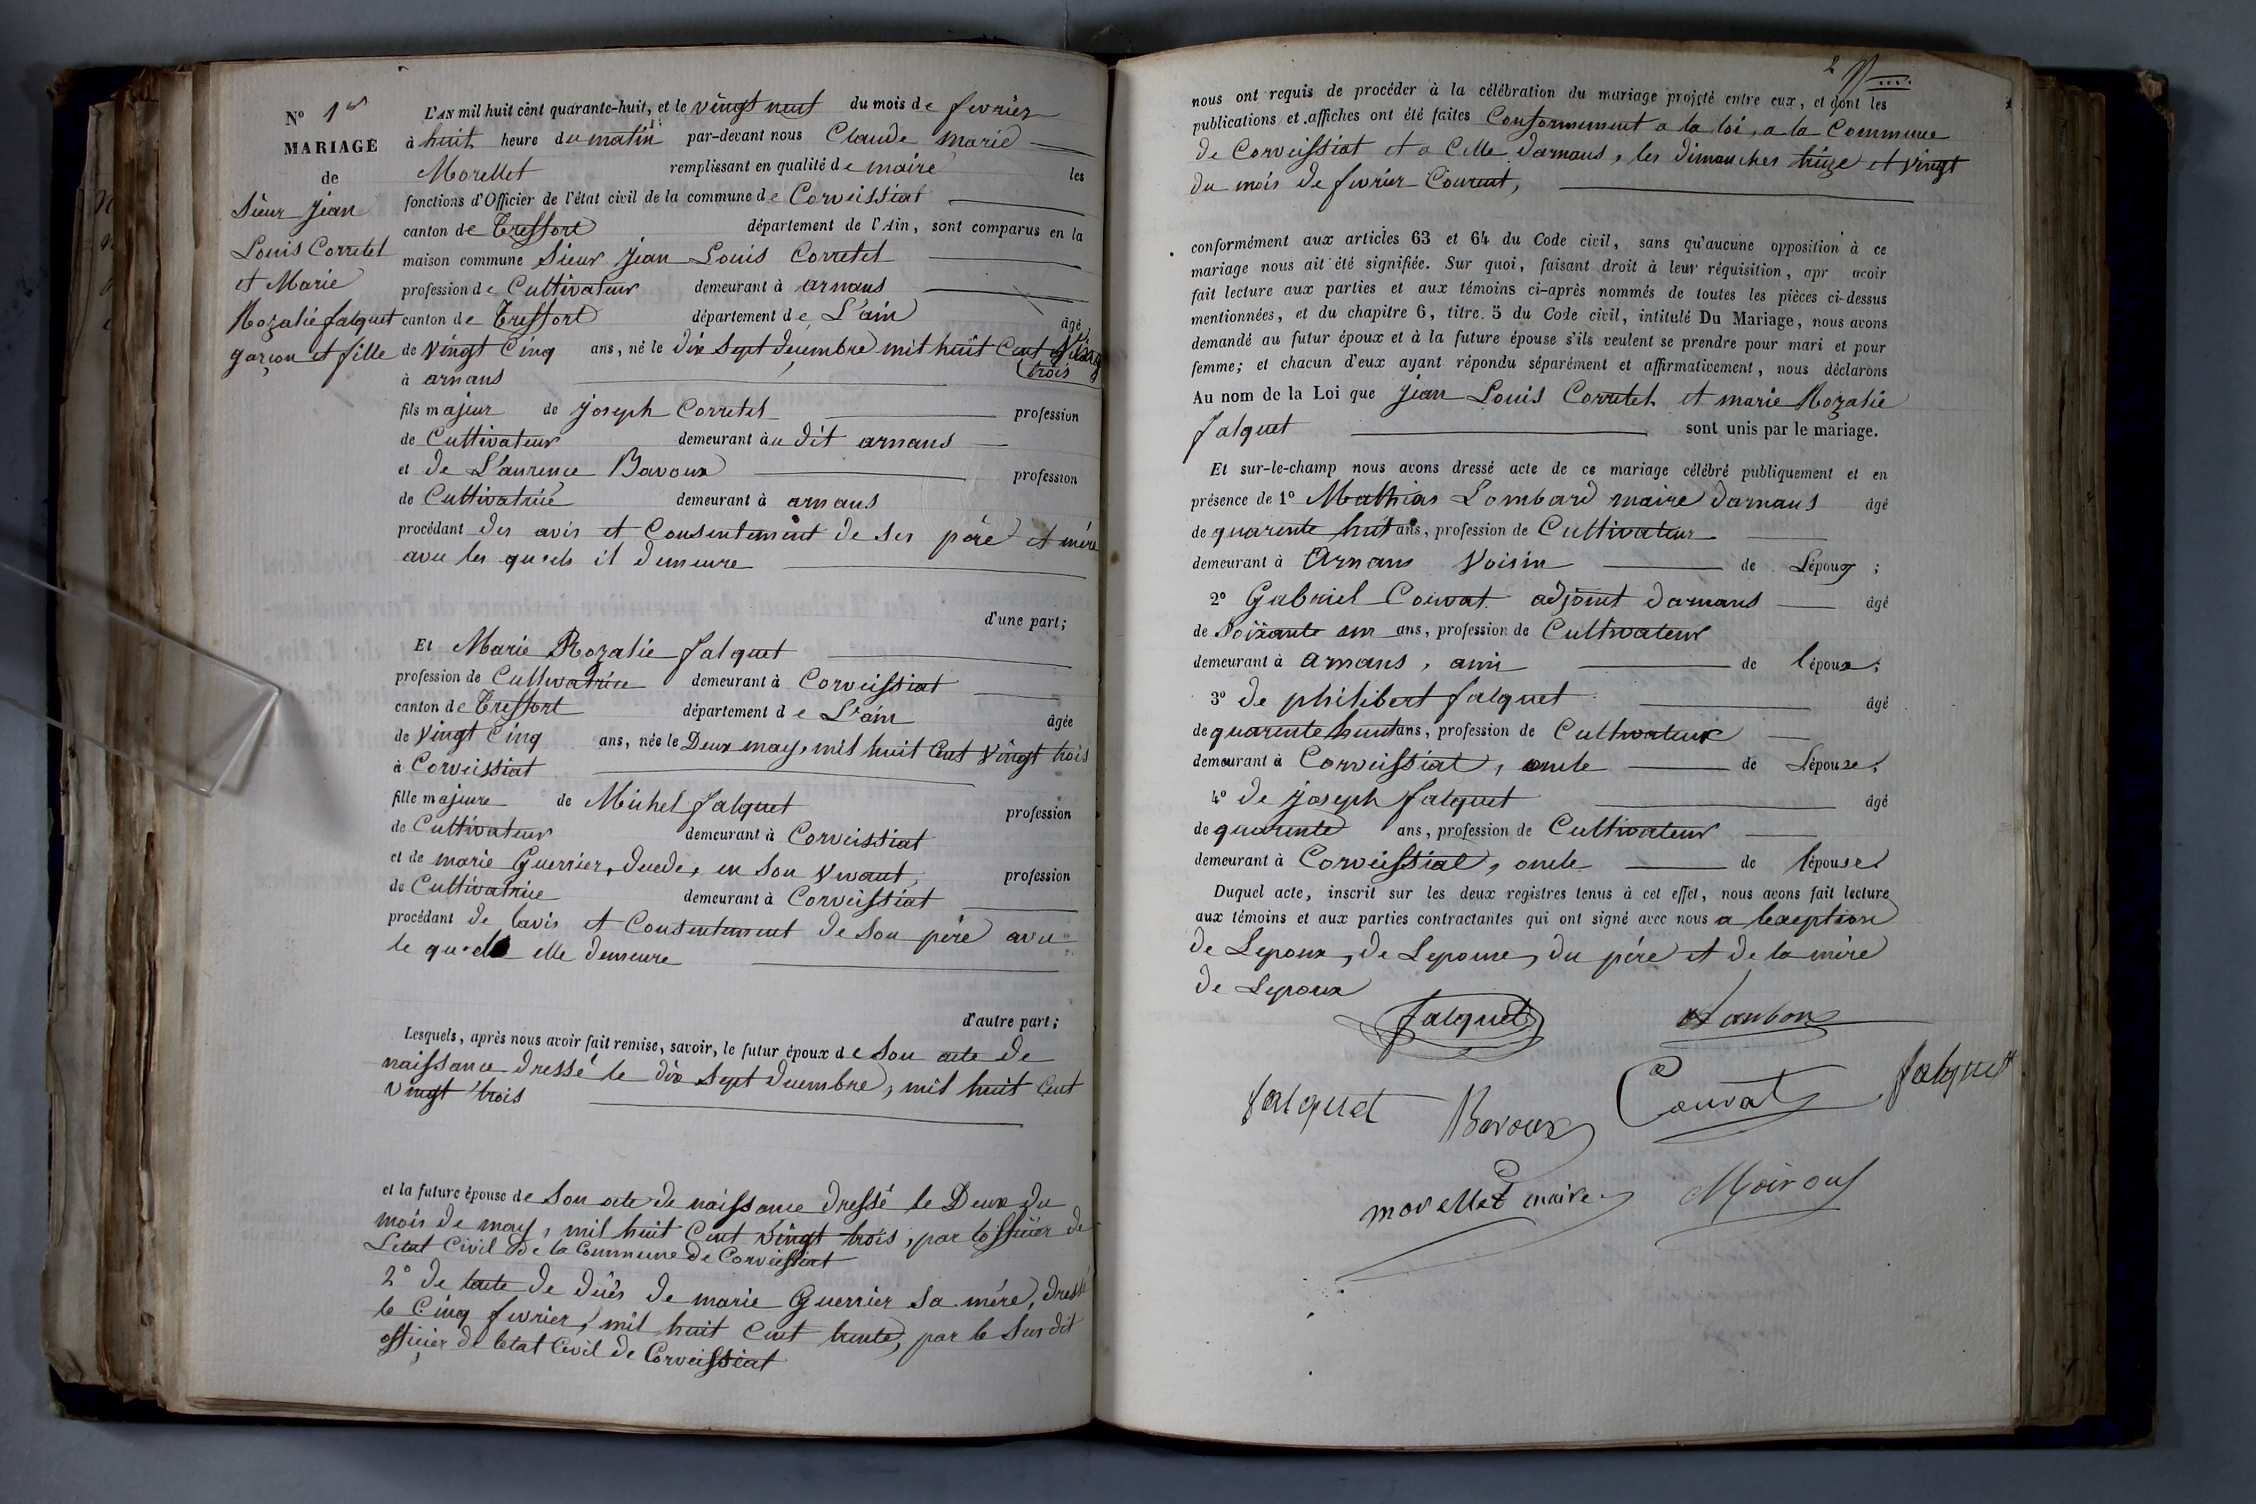 N° 1er
MARIAGE
de
Sieur Jean
Louis Corretel
et Marie
Rozalie falquet
garçon et fille
L'AN mil huit cent quarante-huit, et le vingt neuf du mois de fevrier
à huit heure du matin par-devant nous Claude marie
Morellet remplissant en qualité de maire les
fonctions d'Officier de l'état civil de la commune de Corveissiat
canton de Treffort département de l'Ain, sont comparus en la
maison commune Sieur Jean Louis Corretel
profession de Cultivateur demeurant à arnans
canton de Treffort département de L'ain âgé
de Vingt Cinq ans, né le dix Sept decembre mil huit Cent Vingt
trois
à arnans
fils majeur de joseph Corretel profession
de Cultivateur demeurant àu dit arnans
et de Laurence Bavoux profession
de Cultivatrice demeurant à arnans
procédant des avis et Consentement de ses pére et mére
avec les quels il demeure
d'une part;
Et Marie Rozalie falquet
profession de Cultivatrice demeurant à Corveissiat
canton de Treffort département de L'ain âgée
de Vingt Cinq ans, née le Deux may, mil huit Cent Vingt trois
à Corveissiat
fille majeure de Michel falquet profession
de Cultivateur demeurant à Corveissiat
et de marie Guerrier, decede, en Son Vivant, profession
de Cultivatrice demeurant à Corveissiat
procédant de lavis et Consentement de Son pére avec
le quel elle demeure
d'autre part;
Lesquels, après nous avoir fait remise, savoir, le futur époux de Son acte de
naissance dressé le dix Sept decembre, mil huit Cent
vingt trois
et la future épouse de Son acte de naissance dressé le Deux du
mois de may, mil huit Cent Vingt trois, par lofficier de
Letat Civil de la Commune de Corveissiat
2° de lacte de décés de marie Guerrier sa mére, dressé
le Cinq fevrier, mil huit Cent trente, par le Susdit
officier de letat Civil de Corveissiat
2
nous ont requis de procéder à la célébration du mariage projeté entre eux, et dont les
publications et affiches ont été faites Conformement a la loi, a la Commune
de Corveissiat et a Celle darnans, les dimanches treize et vingt
du mois de fevrier Courent,
conformément aux articles 63 et 64 du Code civil, sans qu'aucune opposition à ce
mariage nous ait été signifiée. Sur quoi, faisant droit à leur réquisition, apr avoir
fait lecture aux parties et aux témoins ci-après nommés de toutes les pièces ci-dessus
mentionnées, et du chapitre 6, titre 5 du Code civil, intitulé Du Mariage, nous avons
demandé au futur époux et à la future épouse s'ils veulent se prendre pour mari et pour
femme; et chacun d'eux ayant répondu séparément et affirmativement, nous déclarons
Au nom de la Loi que Jean Louis Corretel et marie Rozalie
falquet sont unis par le mariage.
Et sur-le-champ nous avons dressé acte de ce mariage célébré publiquement et en
présence de 1° Mathias Lombard maire darnans âgé
de quarente huit ans, profession de Cultivateur
demeurant à Arnans Voisin de Lépoux ;
2° Gabriel Couvat adjoint darnans âgé
de Soixante un ans, profession de Cultivateur
demeurant à arnans, ami de lépoux ;
3° de philibert falquet âgé
de quarente huit ans, profession de Cultivateur
demeurant à Corveissiat, oncle de Lépouse ;
4° de joseph falquet âgé
de quarente ans, profession de Cultivateur
demeurant à Corveissiat, oncle de lépouse.
Duquel acte, inscrit sur les deux registres tenus à cet effet, nous avons fait lecture
aux témoins et aux parties contractantes qui ont signé avec nous a lexeption
de Lepoux, de Lepouse, du pére et de la mére
de Lepoux
falquet
falquet
Bavoux
Couvat
falquet
morellet maire